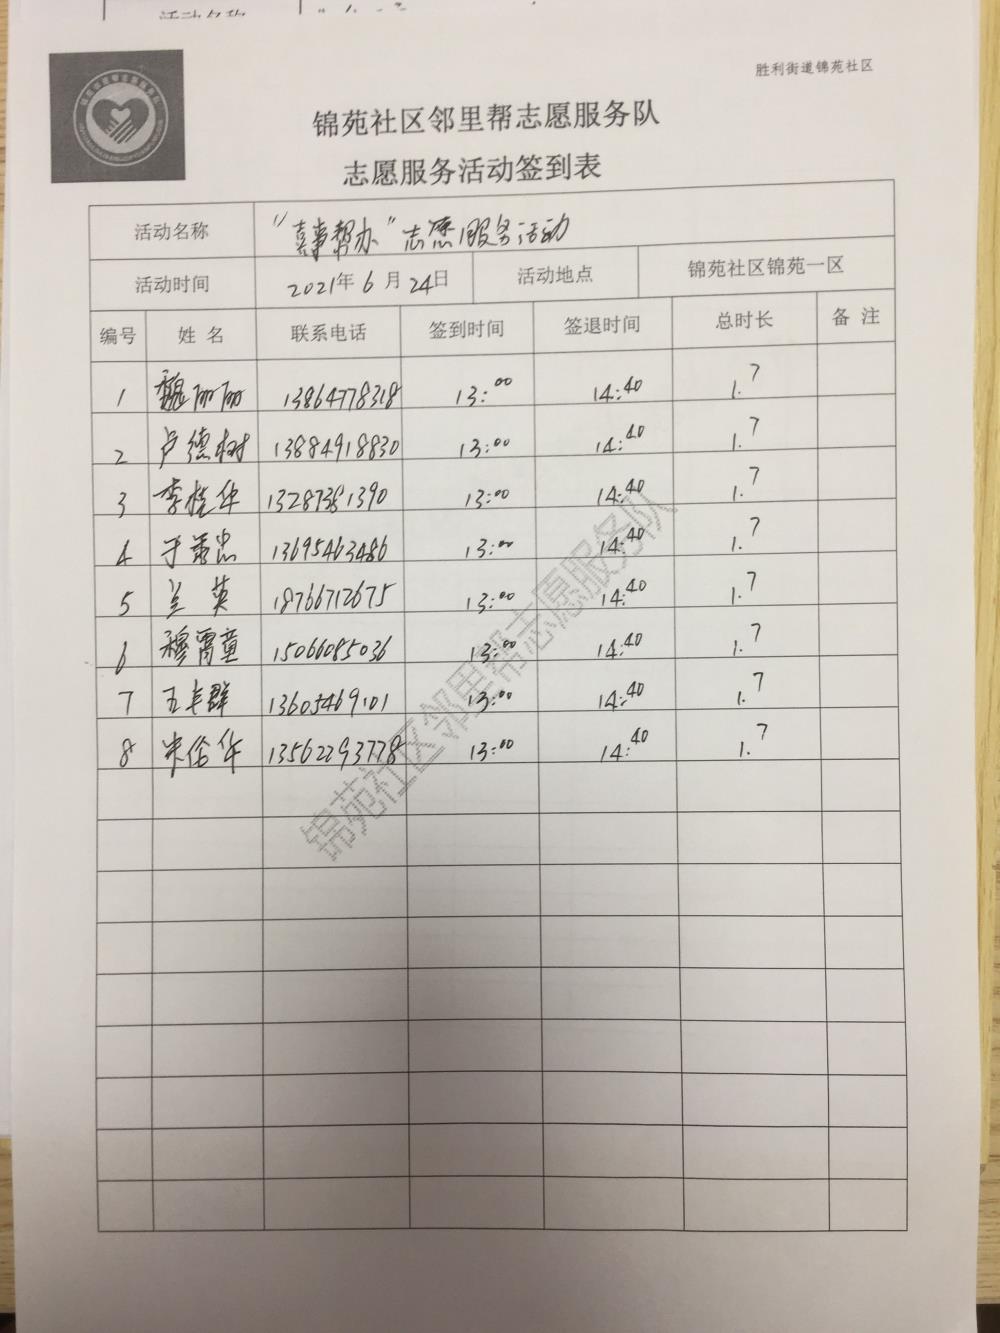 活动名称
胜利街道锦苑社区
锦苑社区邻里帮志愿服务队
志愿服务活动签到表
活动名称 "喜事帮办"志愿服务活动
活动时间 2021年6月24日 活动地点 锦苑社区锦苑一区
编号 姓名 联系电话 签到时间 签退时间 总时长 备注
1 魏丽丽 13864778318 13:00 14:40 1.7
2 卢德树 13884918830 13:00 14:40 1.7
3 李桂华 13287381390 13:00 14:40 1.7
4 于 忠 13695463486 13:00 14:40 1.7
5 兰英 18766712675 13:00 14:40 1.7
6 穆霄童 15066085036 13:00 14:40 1.7
7 王丰群 13605469101 13:00 14:40 1.7
8 朱伦华 13562293778 13:00 14:40 1.7
锦苑社区邻里帮志愿服务队